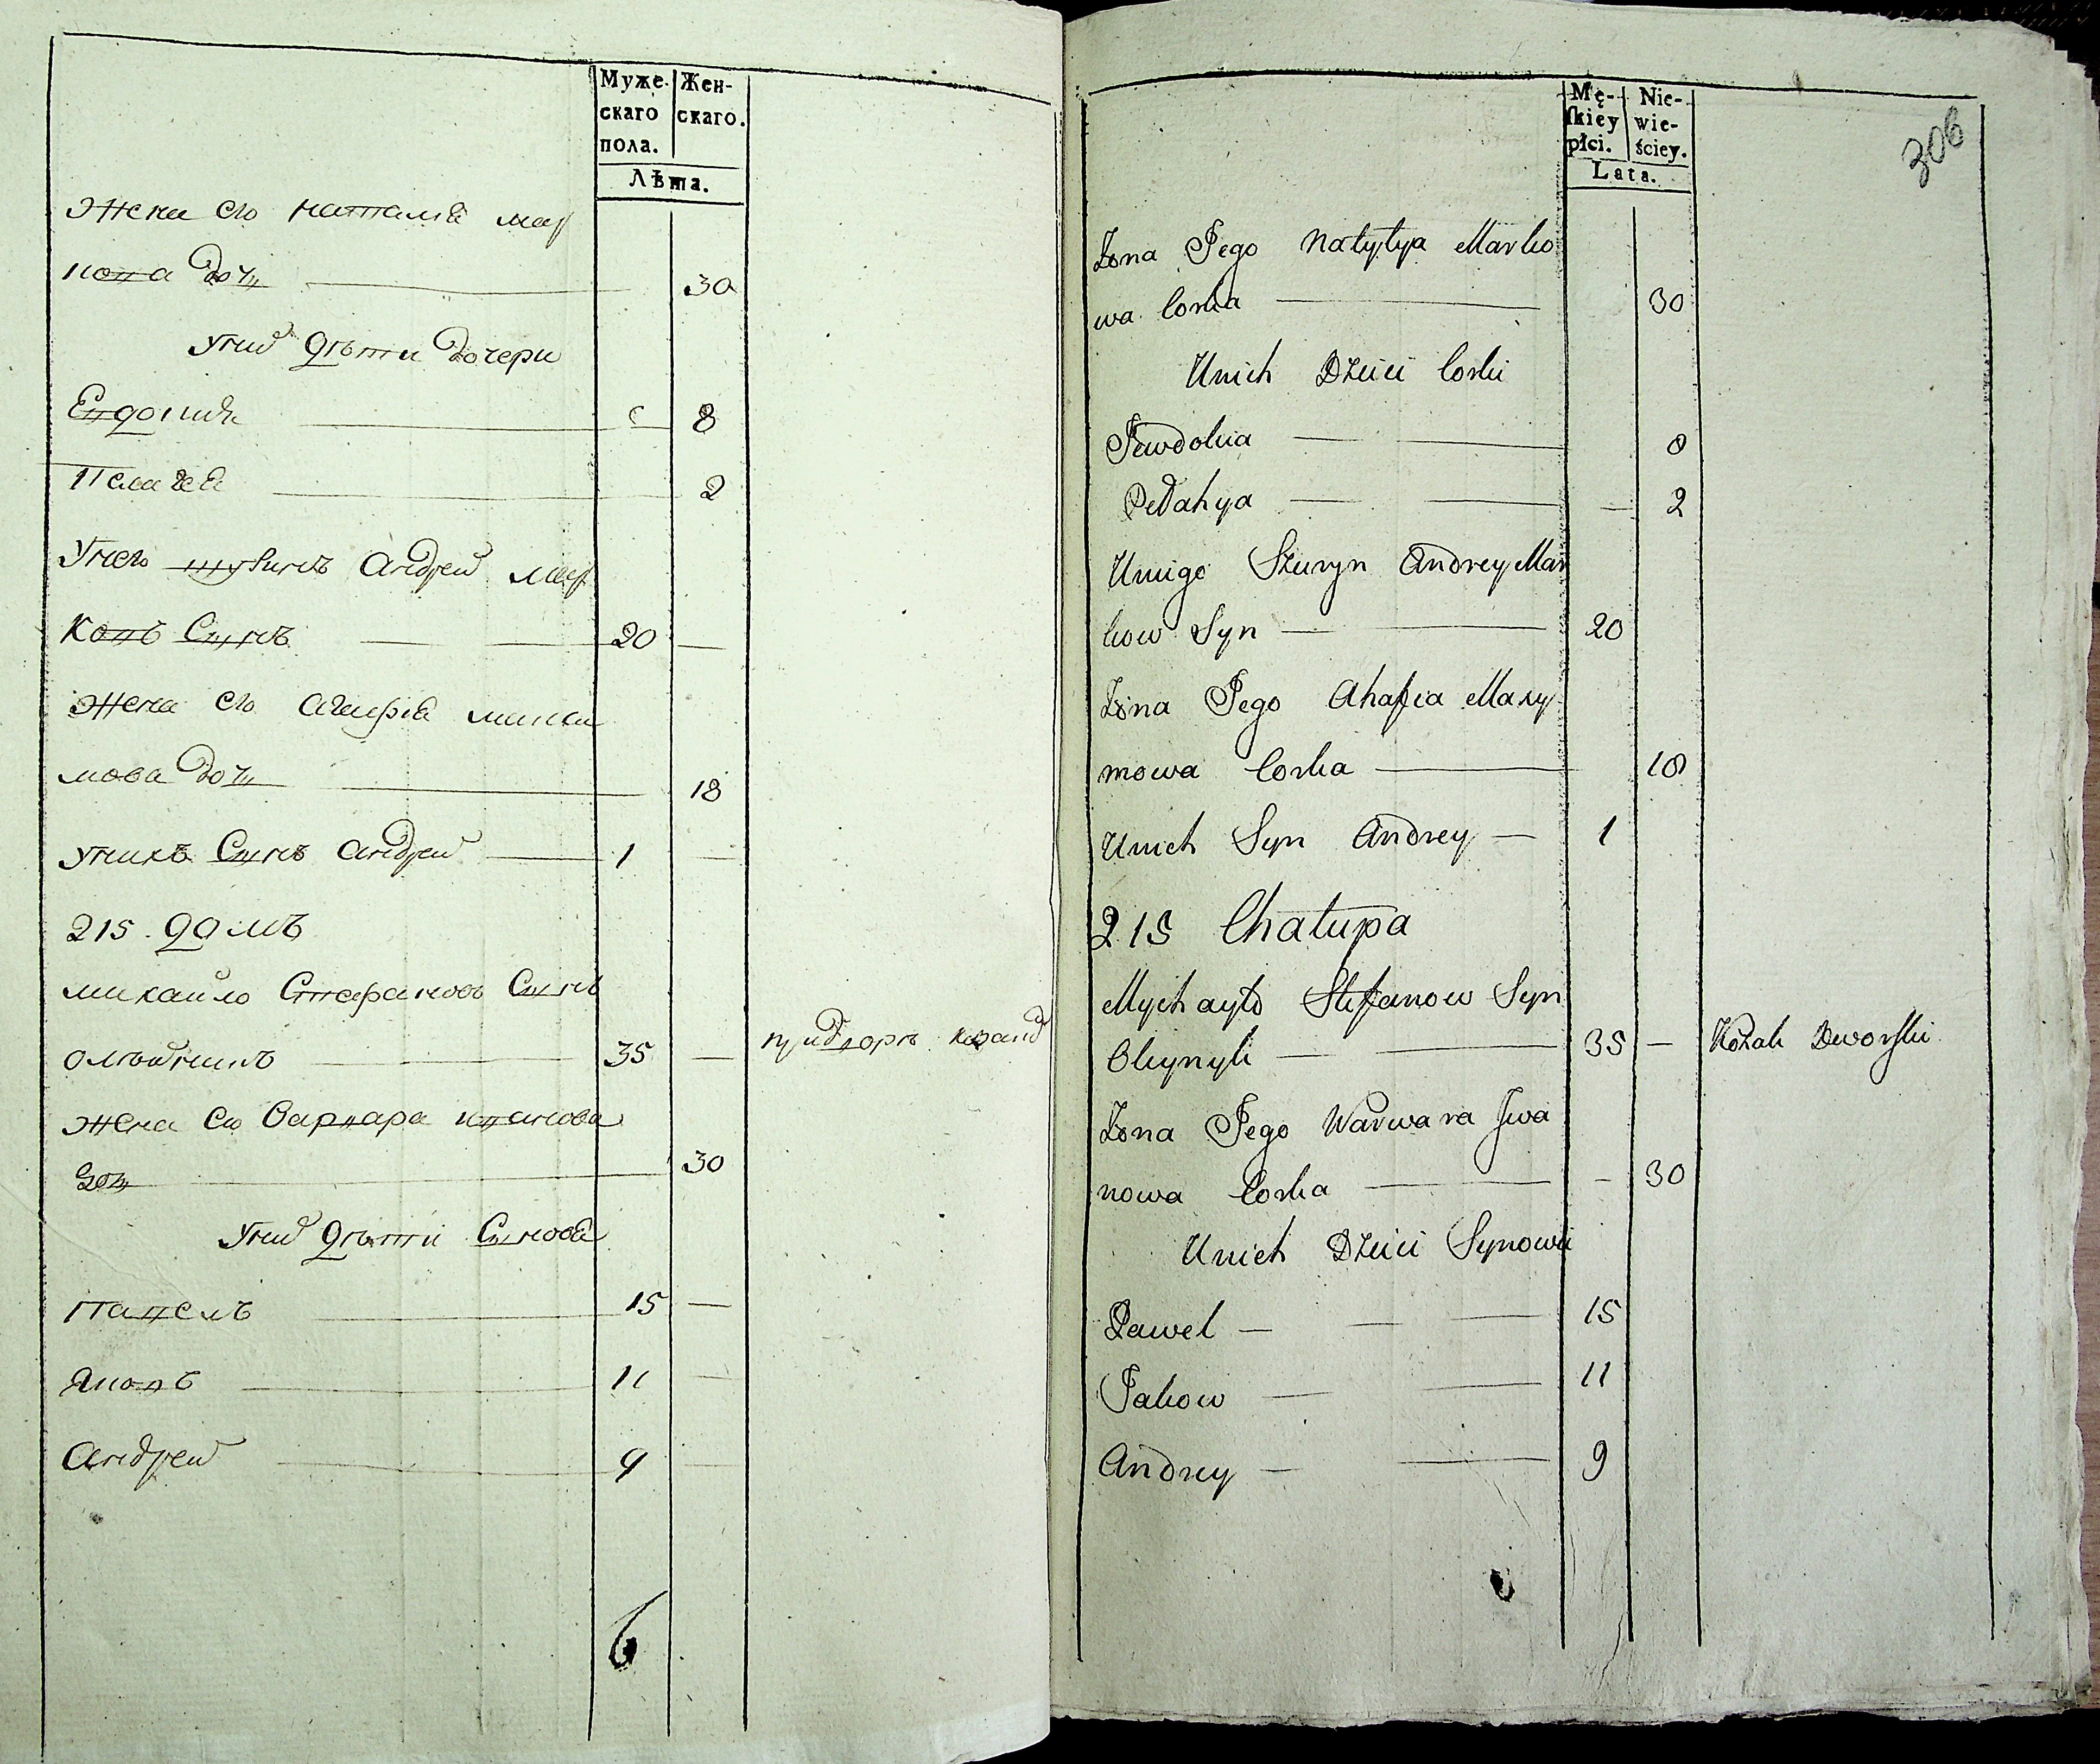 Муже- Жен-
скаго скаго.
пола.
Лѣта.
Жена его наталия мар
кова дочъ 30
Уних дѣти дочери
Евдокия 8
Пелагея 2
Унего шуринъ андрей мар
ковъ Сынъ 20
Жена его агафия макси
мова дочъ 18
Унихъ Сынъ андрей 1
215. домъ
михайло Стефановъ Сынъ
олѣйникъ 35 придворн козакъ
жена его варвара иванова
дочъ 30
Уних дѣти Сыновя
Павелъ 15
Яковъ 11
Андрей 9
6
Mę- Nie-
skiey wie-
płci. ściey.
Lata.
306
Zona Jego Natylya Marko
wa Corka 30
Unich Dzieci Corki
Jewdokia 8
Pelahya 2
Uniego Szuryn Andrey Mar
kow Syn 20
Zona Jego Ahafia Maxy
mowa Corka 18
Unich Syn Andrey 1
215 Chałupa
Mychayło Stefanow Syn
Oleynyk 35 Kozak Dworski
Zona Jego Warwara Iwa
nowa Corka 30
Unich Dzieci Synowie
Pawel 15
Jakow 11
Andrey 9